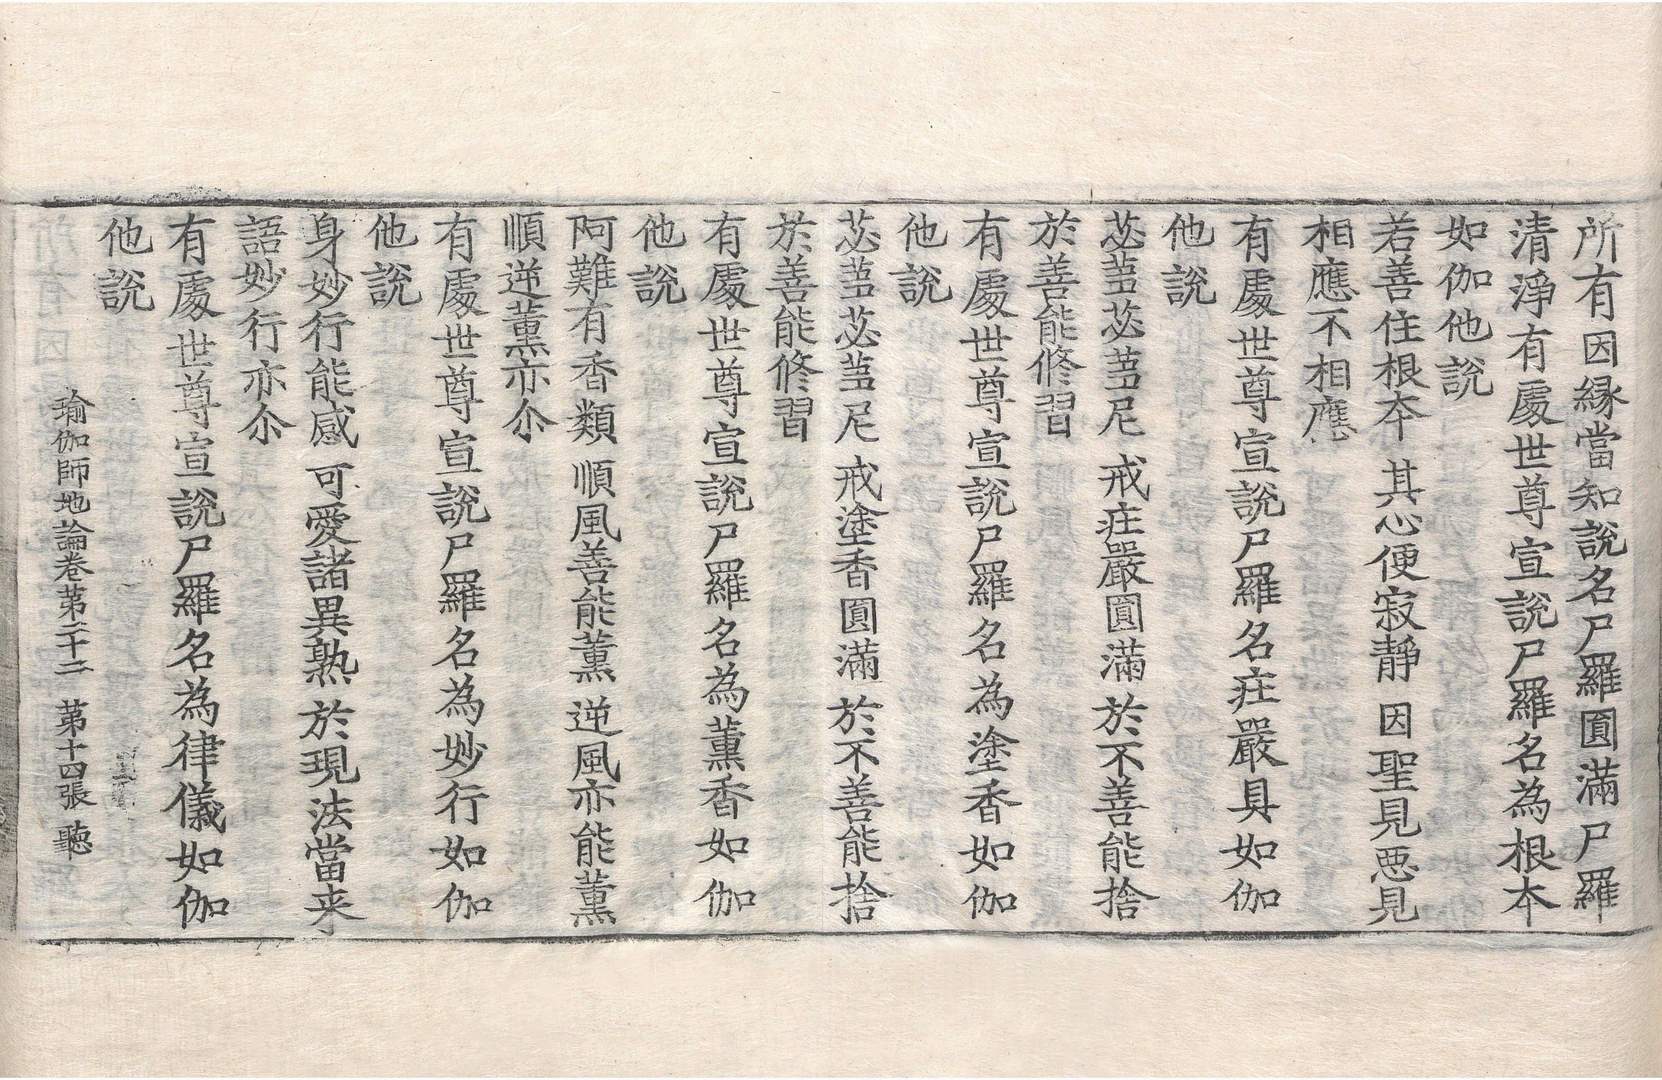 所有因緣當知說名尸羅圓滿尸羅
清淨有處世尊宣說尸羅名為根本
如伽他說
若善住根夲 其心便寂靜 因聖見惡見
相應不相應
有處世尊宣說尸羅名莊嚴具如伽
他說
苾蒭苾蒭尼 戒莊嚴圓滿 於不善能捨
於善能修習
有處世尊宣說尸羅名為塗香如伽
他說
苾蒭苾蒭尼 戒塗香圓滿 於不善能捨
於善能修習
有處世尊宣說尸羅名為薰香如伽
他說
阿難有香類 順風善能薰 逆風亦能薰
順逆薰亦尒
有處世尊宣說尸羅名為妙行如伽
他說
身妙行能感 可愛諸異熟 於現法當来
語妙行亦尒
有處世尊宣說尸羅名為律儀如伽
他說
瑜伽師地論卷第二十二 第十四張 聽